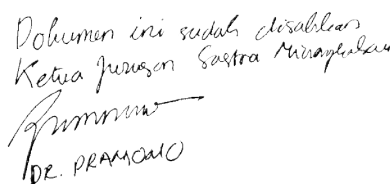 Dokumen ini sudah disahkan
Ketua Jurusan Sastra Minangkabau
DR. PRAMONO